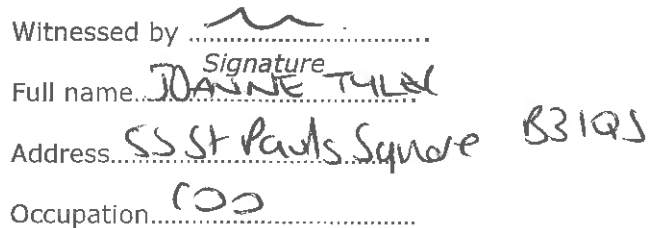 Witnessed by ................................
Signature
Full name.. JOANNE TYLER
Address.. 55 St Pauls Square B31QS
Occupation.. COO